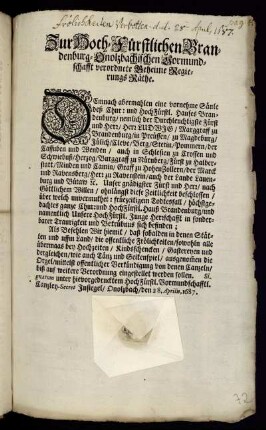 Frölichkeiten Verbotten. d.d. 28. April. 1687.
Zur Hoch-Fürstlichen Bran-
denburg-Onolzbachischen Vormund-
schafft verordnete Geheime Regie-
rungs Räthe.
Demnach abermahlen eine vornehme Säule
deß Chur: und HochFürstl. Hauses Bran-
denburg/ nemlich der Durchleuchtigste Fürst
und Herr/ Herr LUDWIG/ Marggraf zu
Brandenburg/ in Preussen/ zu Magdeburg/
Jülich/ Cleve/ Berg/ Stetin/ Pommern/ der
Cassuben und Wenden/ auch in Schlesien zu Crossen und
Schwiebuß/ Herzog/ Burggraf zu Nürnberg/ Fürst zu Halber-
statt/ Minden und Camin/ Graff zu HohenZollern/ der Marck
und Ravensberg/ Herr zu Ravenstein/ und der Lande Lauen-
burg und Bütau/ ꝛc. Unser gnädigster Fürst und Herr/ nach
Göttlichem Willen/ ohnlängst diese Zeitlichkeit beschlossen/
über welch unvermuthet: früezeitigen Todtesfall/ höchstge-
dachtes gantze Chur: und HochFürstl. Hauß Brandenburg/ und
namentlich Unsere HochFürstl. Junge Herrschafft in sonder-
barer Traurigkeit und Betrübnus sich befinden;
Als Befehlen Wir hiemit/ daß sobalden in denen Stät-
ten und uffm Land/ die offentliche Frölichkeiten/ sowohln alle
übermaas bey Hochzeiten/ Kindschencken/ Gastereyen und
dergleichen/ wie auch Tänz und Geigenspiel/ ausgenommen die
Orgel/ mittelst offentlicher Verkündigung von denen Canzeln/
biß auf weitere Verordnung eingestellet werden sollen. Si-
gnatum unter hievorgedrucktem HochFürstl. Vormundschafftl.
Canzley-Secret Insiegel/ Onolzbach/ den 28. Aprilis, 1687.
72